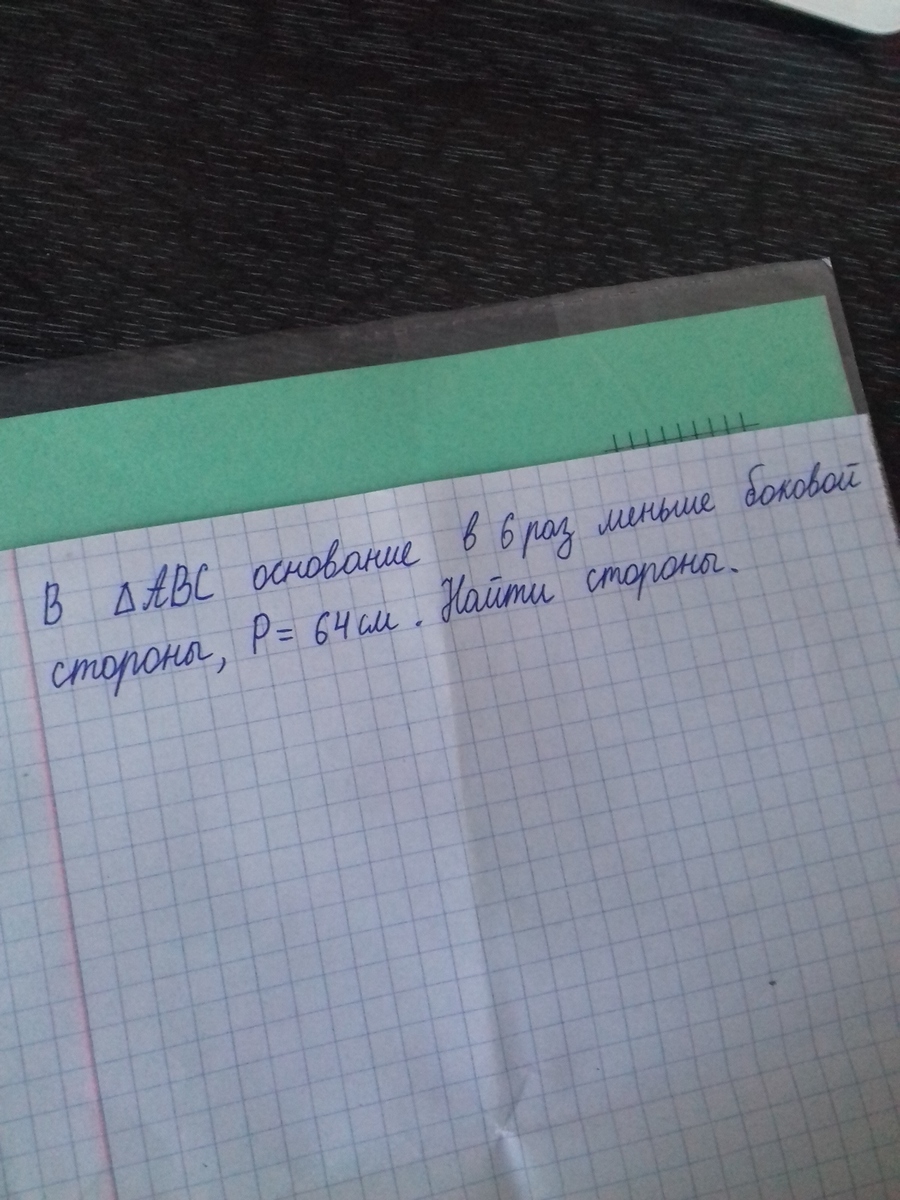 В △ABC основание в 6 раз меньше боковой
стороны, P = 64 см. Найти стороны.